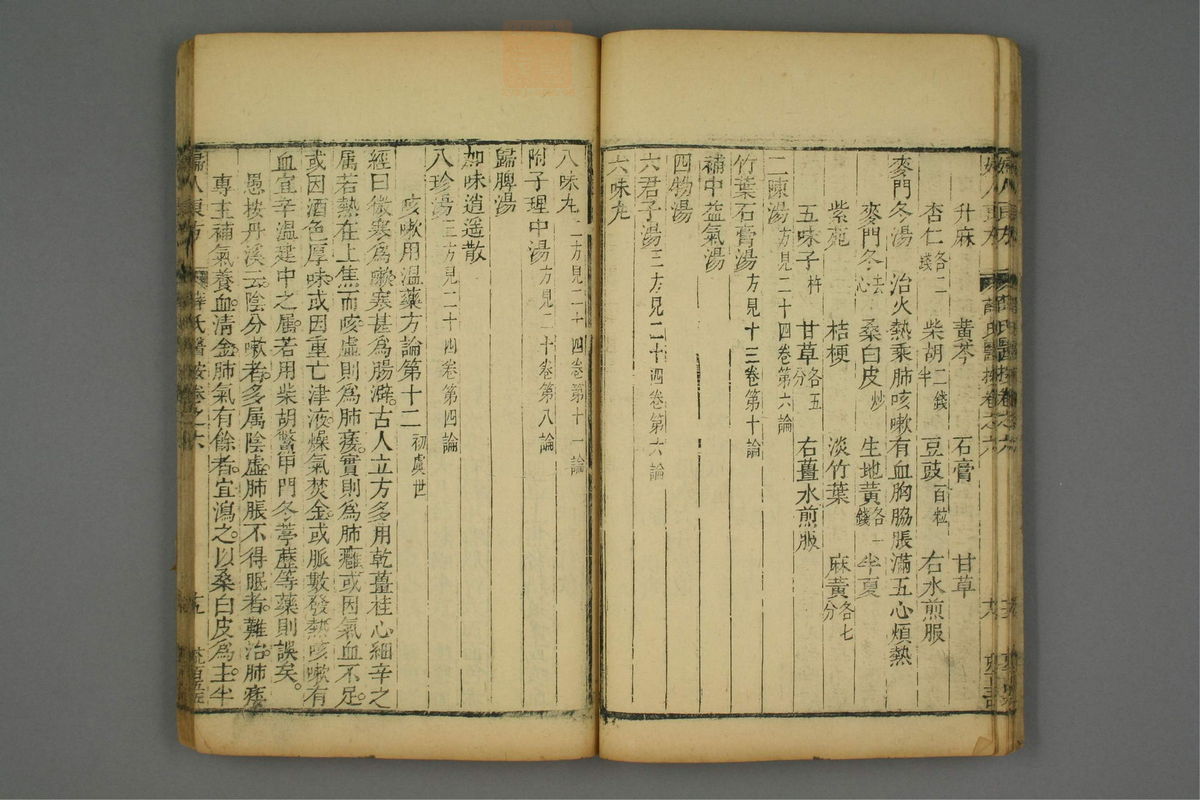 升麻 黃芩 石膏 甘草
杏仁各二錢 柴胡二錢半 豆豉百粒 右水煎服
麥門冬湯 治火熱乘肺咳嗽有血胸脇脹滿五心煩熱
麥門冬去心 桑白皮炒 生地黃各一錢 半夏
紫菀 桔梗 淡竹葉 麻黃各七分
五味子杵 甘草各五分 右薑水煎服
二陳湯方見二十四卷第六論
竹葉石膏湯方見十三卷第十論
補中益氣湯
四物湯
六君子湯三方見二十四卷第六論
六味丸
八味丸二方見二十四卷第十一論
附子理中湯方見二十卷第八論
歸脾湯
加味逍遥散
八珍湯三方見二十四卷第四論
咳嗽用溫藥方論第十二初虞世
經曰微寒爲嗽寒甚爲腸澼古人立方多用乾薑桂心細辛之
属若熱在上焦而咳虛則爲肺痿實則爲肺癰或因氣血不足
或因酒色厚味或因重亡津液燥氣焚金或脈數發熱咳嗽有
血宜辛溫建中之属若用柴胡鱉甲門冬葶藶等藥則誤矣
愚按丹溪云陰分嗽者多属陰虛肺脹不得眠者難治肺痿
專主補氣養血清金肺氣有餘者宜瀉之以桑白皮爲主半
婦人良方 薛氏醫按卷之六